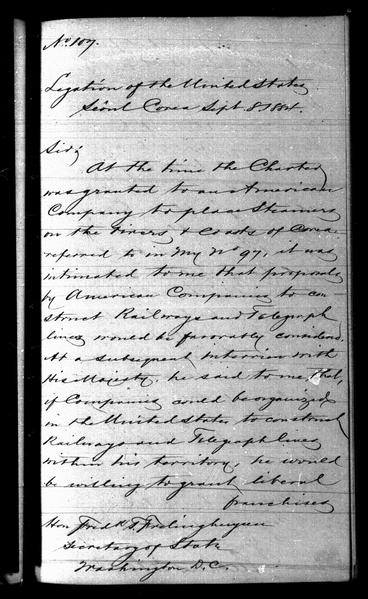 No 107.
Legation of the United States
Séoul Corea Sept. 8 1884.
Sir;
At the time the Charter
was granted to an American
Company to place Steamers
on the rivers & coasts of Corea
referred to in my No 97, it was
intimated to me that proposals
by American Companies to con-
struct Railways and Telegraph
lines would be favorably considered.
At a subsequent interview with
His Majesty, he said to me, that,
if Companies could be organized
in the United States to construct
Railways and Telegraph lines
within his territory, he would
be willing to grant liberal
franchises
Hon Fredk T Frelinghuysen
Secretary of State
Washington D.C.